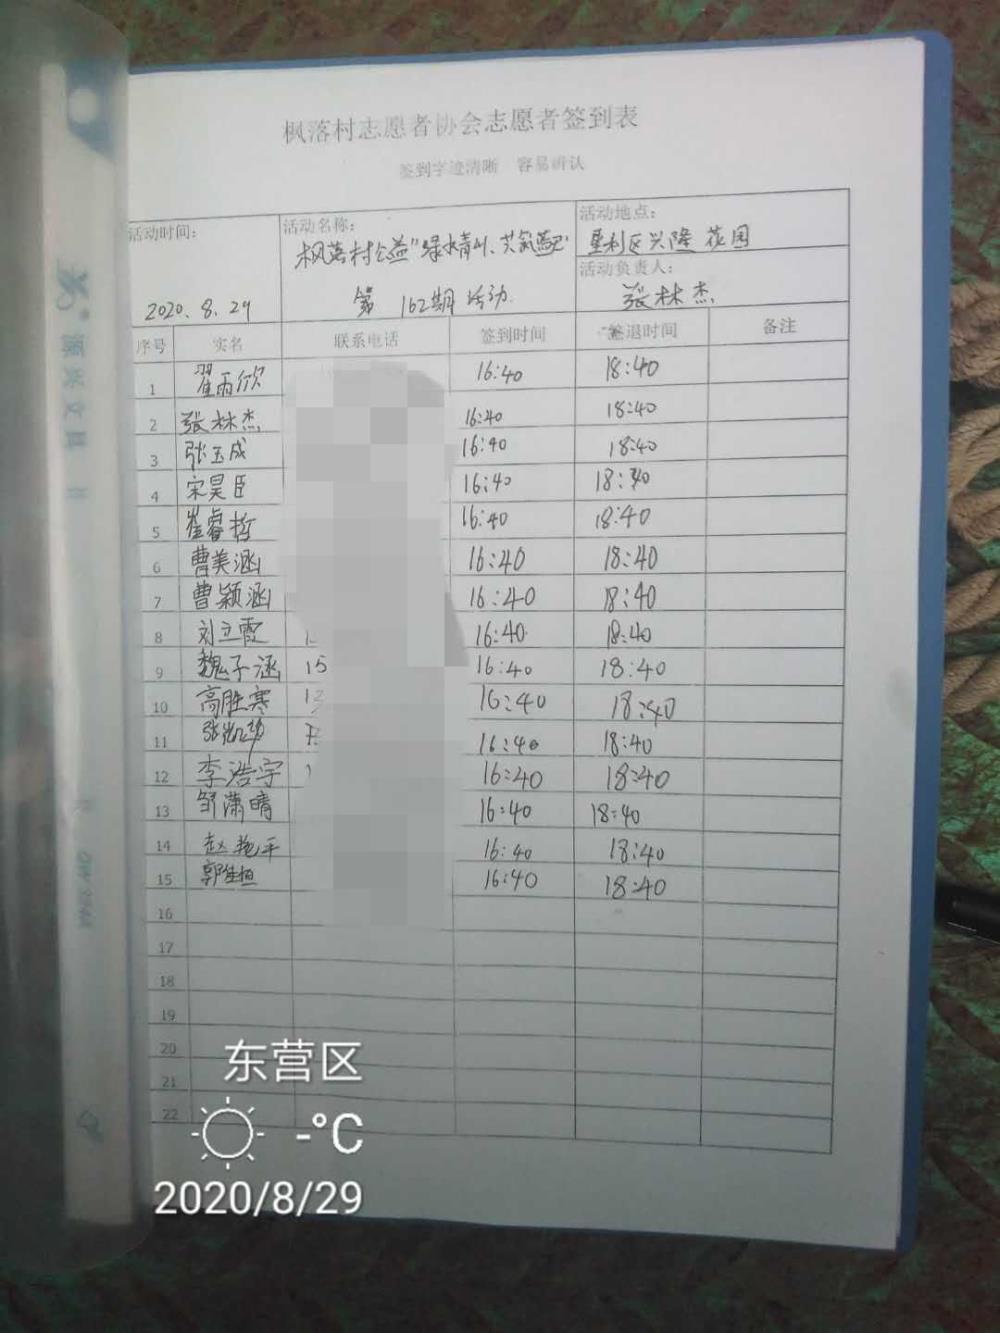 枫落村志愿者协会志愿者签到表
签到字迹清晰 容易辨认
活动时间: 2020.8.29
活动名称: 枫落村公益"绿水青山、共筑
第162期活动
活动地点: 垦利区兴隆花园
活动负责人: 张林杰
序号 实名 联系电话 签到时间 签退时间 备注
1 翟雨欣 16:40 18:40
2 张林杰 16:40 18:40
3 张玉成 16:40 18:40
4 宋昊臣 16:40 18:40
5 崔睿哲 16:40 18:40
6 曹美涵 16:40 18:40
7 曹颖涵 16:40 18:40
8 刘立霞 16:40 18:40
9 魏子涵 15 16:40 18:40
10 高胜寒 16:40 18:40
11 16:40 18:40
12 李浩宇 16:40 18:40
13 邹潇晴 16:40 18:40
14 赵艳平 16:40 18:40
15 16:40 18:40
16
17
18
19
20
21
22
东营区
-°C
2020/8/29